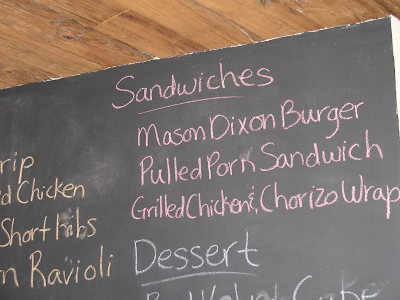 Sandwiches
Mason Dixon Burger
Pulled Pork Sandwich
Grilled Chicken &, Chorizo Wrap
rip
d Chicken
Short ribs
n Ravioli
Dessert
Cake